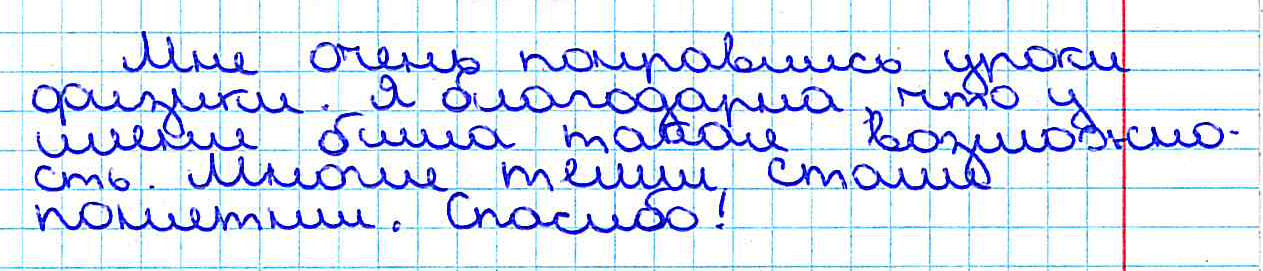 Мне очень понравились уроки
физики. Я благодарна, что у
меня была такая возможно-
сть. Многие темы стали
понятны. Спасибо!